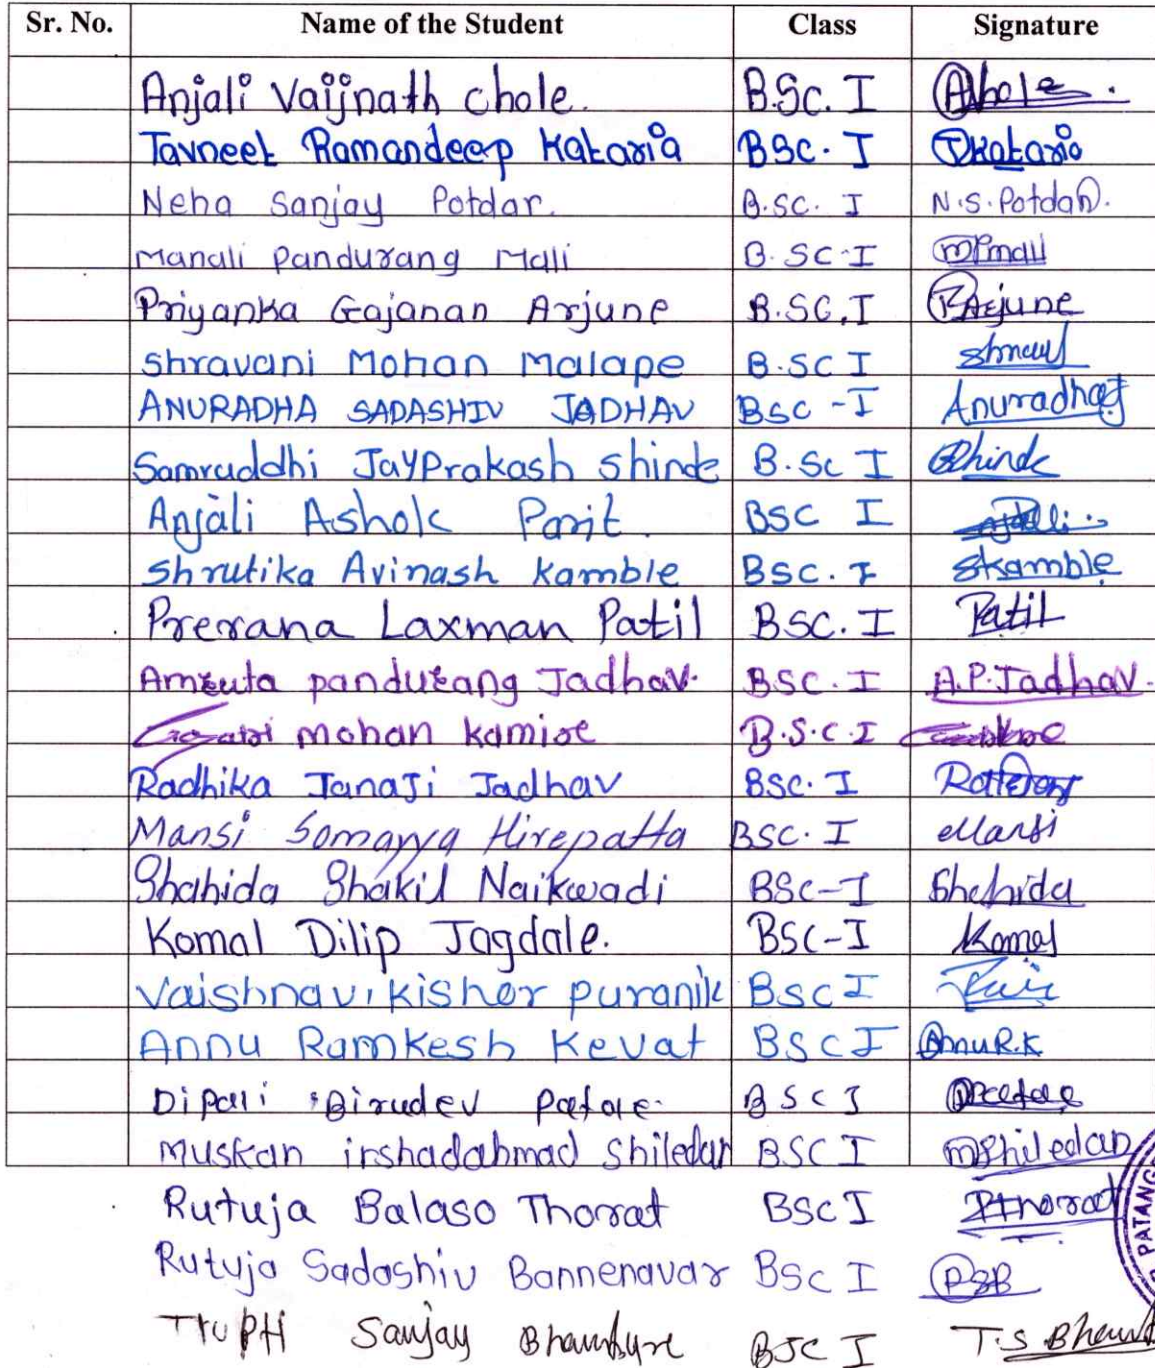 Sr. No. Name of the Student Class Signature
Anjali Vaijnath Chole. B.Sc. I Ahole.
Tavneet Ramandeep Kataria BSc. I TKataria
Neha Sanjay Potdar. B.SC. I N.S.Potdar.
Manali Pandurang Mali B.SC-I mpmali
Priyanka Gajanan Arjune B.SC.I PArjune
Shravani Mohan Malape B.SC I
ANURADHA SADASHIV JADHAV BSC-I Anuradhaj
Samruddhi JayPrakash Shinde B.Sc I Shinde
Anjali Ashok Parit. BSC I
Shrutika Avinash Kamble BSC. I Skamble
Prerana Laxman Patil BSC. I Patil
Amruta pandurang Jadhav. BSC. I A.P.Jadhav.
mohan B.S.C.I
Radhika Janaji Jadhav BSC. I
Mansi Somayya Hirepatta BSC. I Mansi
Shahida Shakil Naikwadi BSC-I Shahida
Komal Dilip Jagdale. BSC-I Komal
Vaishnavi kishor puranik BSC I
Annu Ramkesh Kevat BSC I AnnuR.K
Dipali Birudev BSC I
Muskan irshadahmad Shiledar BSC I mShiledar
Rutuja Balaso Thorat BSC I RThorat
Rutuja Sadashiv Bannenavar BSC I RSB
Trupti Sanjay BSC I T.S
PATANG